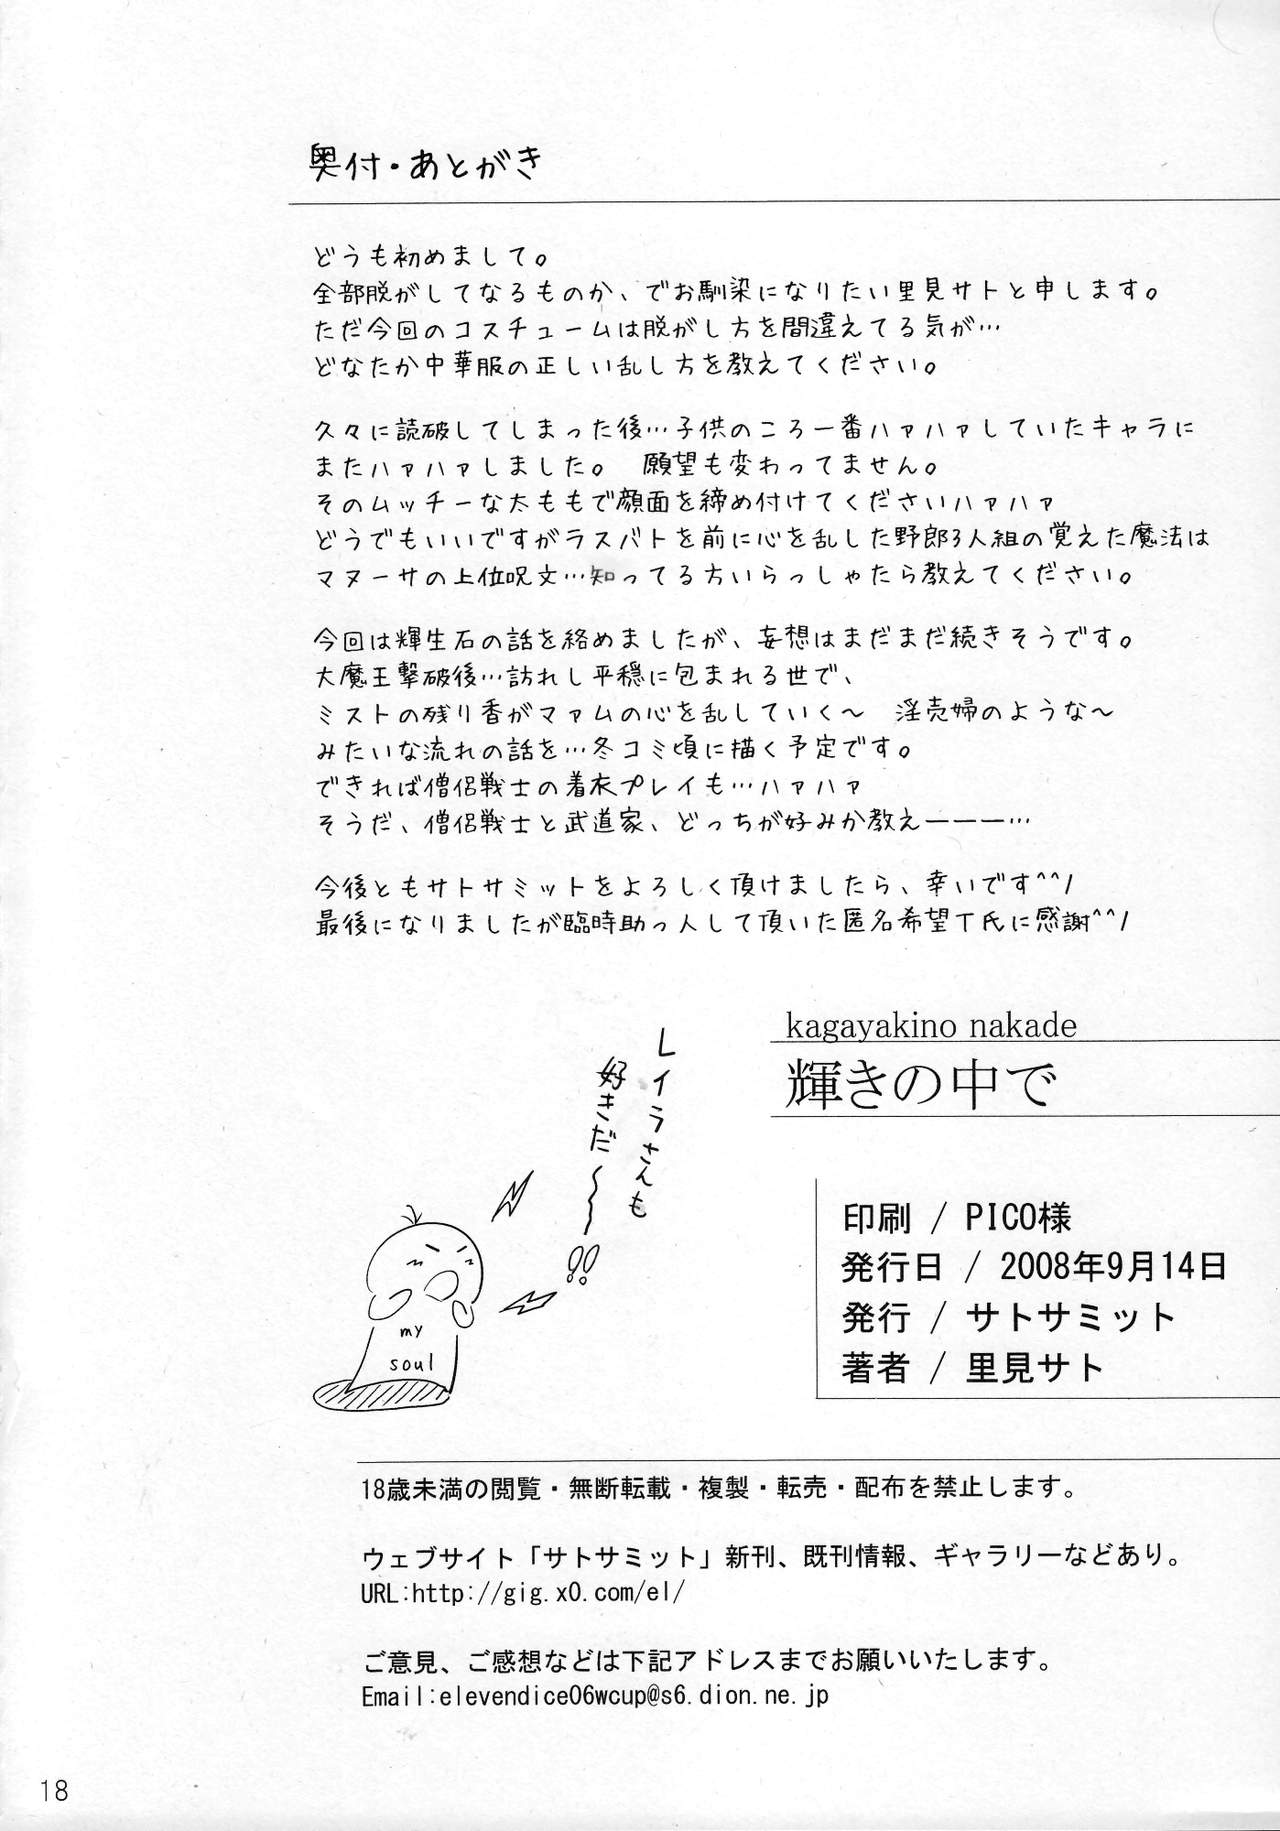 奥付・あとがき
どうも初めまして。
全部脱がしてなるものか、でお馴染になりたい里見サトと申します。
ただ今回のコスチュームは脱がし方を間違えてる気が…
どなたか中華服の正しい乱し方を教えてください。
久々に読破してしまった後…子供のころ一番ハァハァしていたキャラに
またハァハァしました。　願望も変わってません。
そのムッチーな太ももで顔面を締め付けてくださいハァハァ
どうでもいいですがラスバトを前に心を乱した野郎3人組の覚えた魔法は
マヌーサの上位呪文…知ってる方いらっしゃたら教えてください。
今回は輝生石の話を絡めましたが、妄想はまだまだ続きそうです。
大魔王撃破後…訪れし平穏に包まれる世で、
ミストの残り香がマァムの心を乱していく～　淫売婦のような～
みたいな流れの話を…冬コミ頃に描く予定です。
できれば僧侶戦士の着衣プレイも…ハァハァ
そうだ、僧侶戦士と武道家、どっちが好みか教えーーー…
今後ともサトサミットをよろしく頂けましたら、幸いです^^/
最後になりましたが臨時助っ人して頂いた匿名希望T氏に感謝^^/
レイラさんも
好きだ～～!!
my
soul
kagayakino nakade
輝きの中で
印刷 / PICO様
発行日 / 2008年9月14日
発行 / サトサミット
著者 / 里見サト
18歳未満の閲覧・無断転載・複製・転売・配布を禁止します。
ウェブサイト「サトサミット」新刊、既刊情報、ギャラリーなどあり。
URL:http://gig.x0.com/el/
ご意見、ご感想などは下記アドレスまでお願いいたします。
Email:elevendice06wcup@s6.dion.ne.jp
18